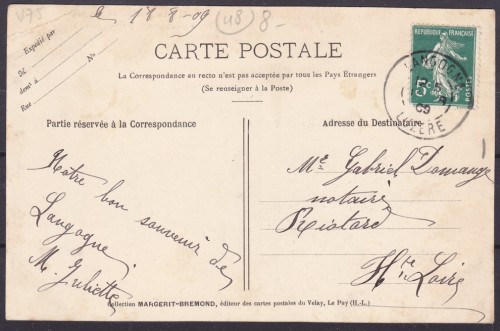 V75
le 18-8-09 (48) 8-
Expédié par
M
demt à
Rue
N°
CARTE POSTALE
La Correspondance au recto n'est pas acceptée par tous les Pays Etrangers
(Se renseigner à la Poste)
REPUBLIQUE FRANÇAISE
5c
POSTES
LANGOGNE
09
LOZERE
Partie réservée à la Correspondance
Notre bon souvenir de
Langogne
M. Juliette
Adresse du Destinataire
Me Gabriel Domange
notaire
Riotard
Hte Loire
Collection MARGERIT-BREMOND, éditeur des cartes postales du Velay, Le Puy (H.-L.)